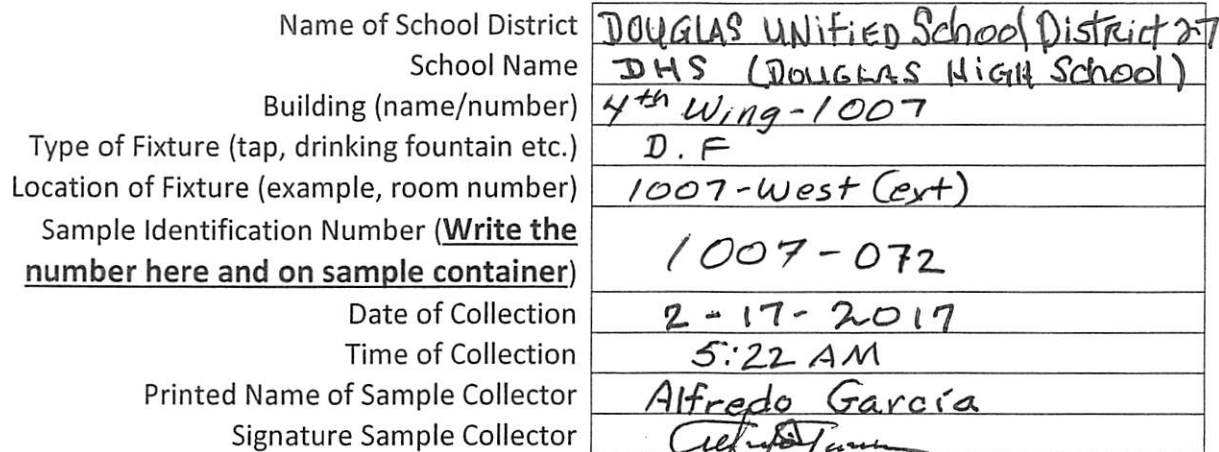 Name of School District DOUGLAS UNIFIED School District 27
School Name DHS (DOUGLAS HIGH School)
Building (name/number) 4th Wing-1007
Type of Fixture (tap, drinking fountain etc.) D.F
Location of Fixture (example, room number) 1007-West (ext)
Sample Identification Number (Write the
number here and on sample container) 1007-072
Date of Collection 2-17-2017
Time of Collection 5:22 AM
Printed Name of Sample Collector Alfredo García
Signature Sample Collector